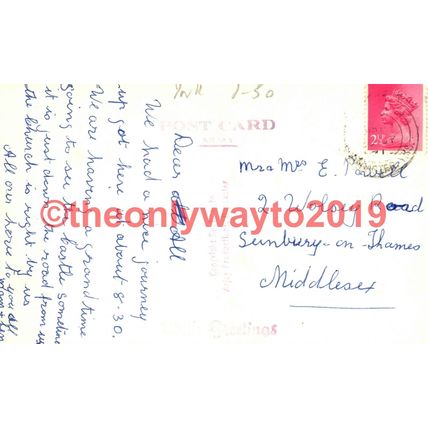 York 1-50
POST CARD
2½P
Dear All
We had a nice journey
up got here at about 8-30.
We are having a grand time
going to see the castle sometime
it is just down the road from us
the church is right by us
All our love to you all
Mr & Mrs E. Powell
2 Wolsey Road
Sunbury-on-Thames
Middlesex
Greetings
©theonlywayto2019